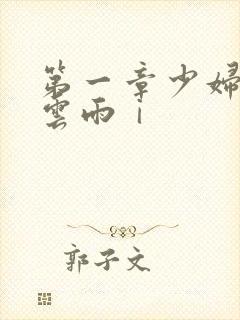 第一章少婦
雲雨｜
郭子文